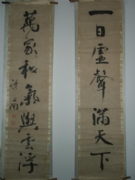 一日雷聲滿天下
萬家和氣與雲浮